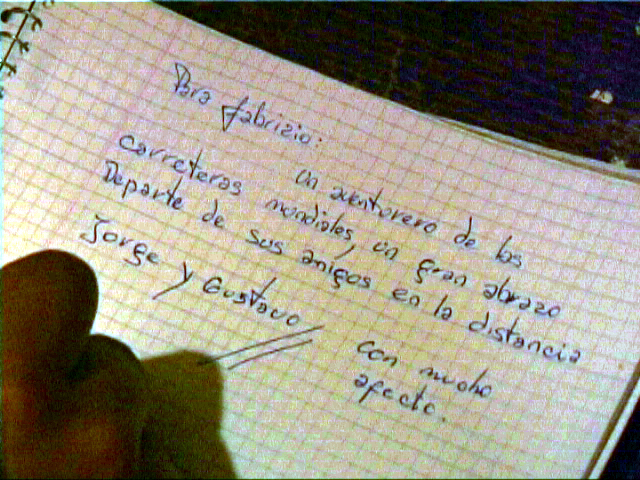 Para fabrizio:
un aventurero de las
carreteras mundiales, un gran abrazo
Departe de sus amigos en la distancia
Jorge y Gustavo
con mucho
afecto.